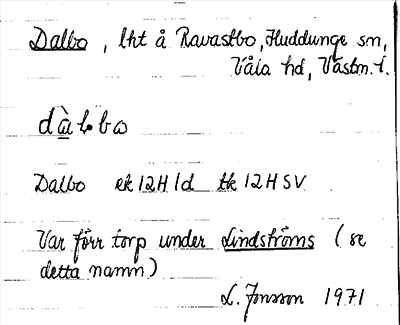 Dalbo, lht å Ravastbo, Huddunge sn,
Våla hd, Västm. l.
dà̲l·bω
Dalbo ek 12H 1d tk 12H SV
Var förr torp under Lindströms (se
detta namn)
L. Jonsson 1971